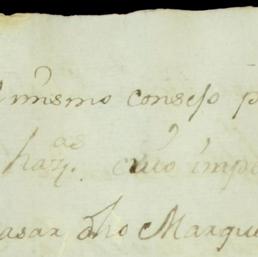 mismo consejo p
haz.as cuio impo
asar dho Marqu